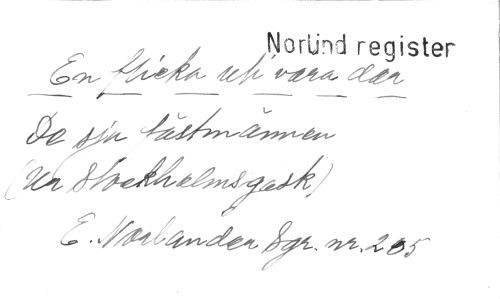 Norlind register
En flicka uti våra dar
De sju fästmännen
(ur Stockholmsgask)
E. Norlander Sgr. nr. 265